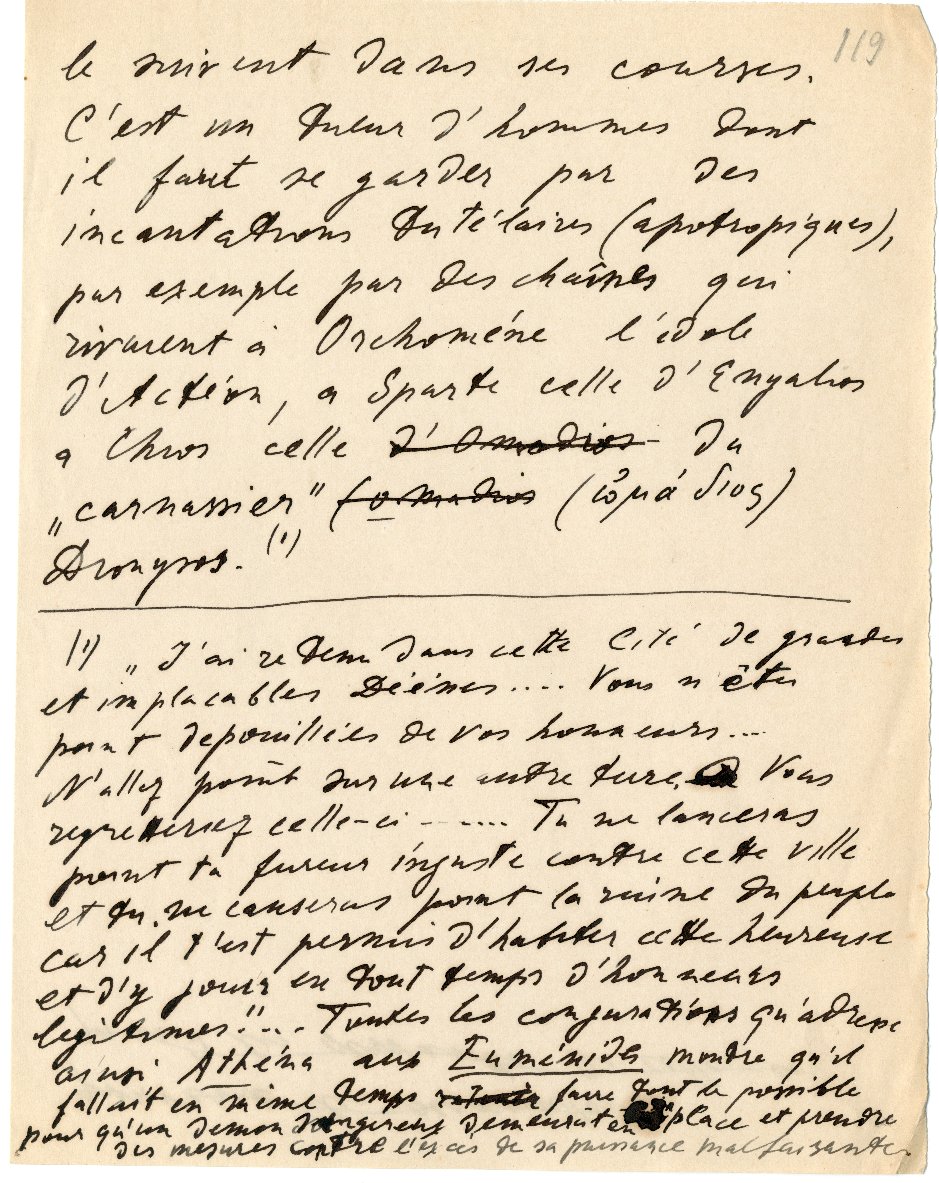 119
le suivent dans ses courses.
C'est un tueur d'hommes dont
il faut se garder par des
incantations tutélaires (apotropiques),
par exemple par des chaînes qui
rivaient à Orchomène l'idole
d'Actéon, a Sparte celle d'Enyalios
a Chios celle d'Omadios du
„carnassier" (omadios (ὠμάδιος)
Dionysos. (1)
(1) „J'ai retenu dans cette Cité de grandes
et implacables Déesses.... Vous n'êtes
point depouillées de vos honneurs...
N'allez point sur une autre terre. Vous
regretteriez celle-ci ....... Tu ne lanceras
point ta fureur injuste contre cette ville
et tu ne causeras point la ruine du peuple
car il t'est permis d'habiter cette heureuse
et d'y jouir en tout temps d'honneurs
legitimes."... Toutes les conjurations qu'adresse
ainsi Athéna aux Euménides montre qu'il
fallait en même temps faire tout le possible
pour qu'un demon dangereux demeurât en place et prendre
des mesures contre l'excès de sa puissance malfaisante